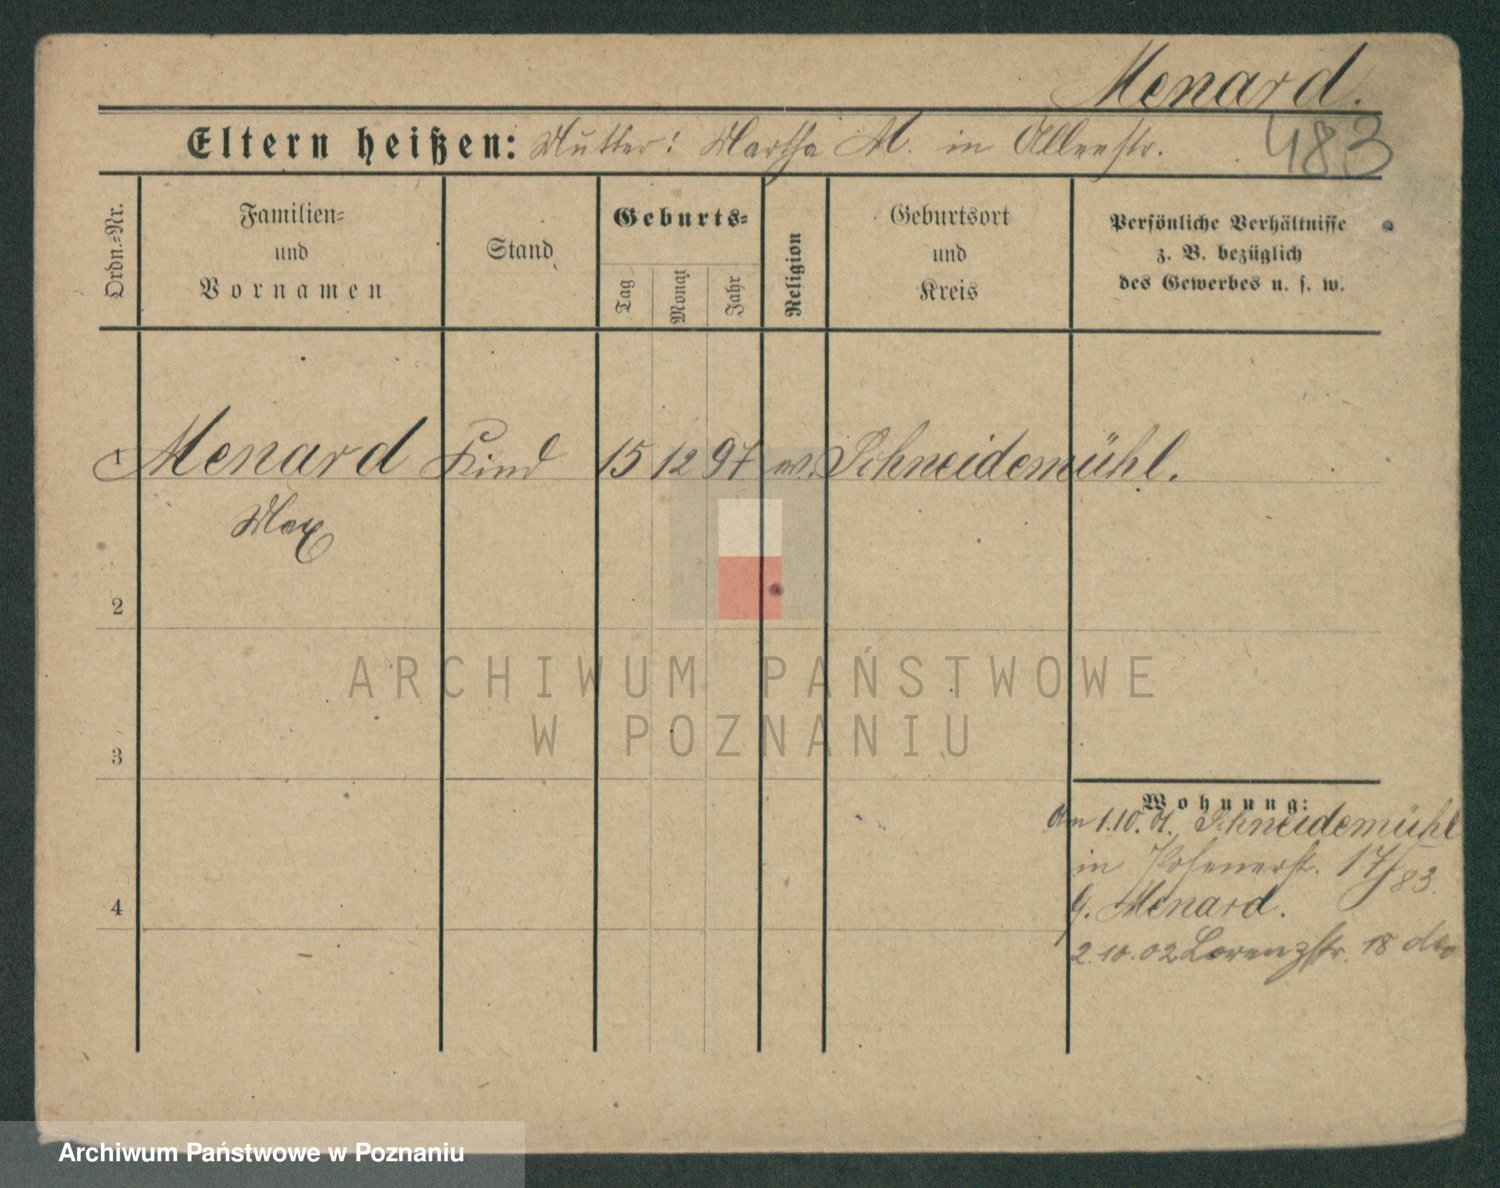 Menard.
Eltern heißen: Mutter: Martha M. in Allenstr.
483
Ordn.=Nr.
Familien=
und
Vornamen
Stand
Geburts=
Tag
Monat
Jahr
Religion
Geburtsort
und
Kreis
Persönliche Verhältnisse
z. B. bezüglich
des Gewerbes u. s. w.
1 Menard Kind 15 12 97 Schneidemühl.
Max
2
ARCHIWUM PAŃSTWOWE
W POZNANIU
3
Wohnung:
1.10. Schneidemühl
in Posenerstr. 17/83.
Menard.
4
2.10.02 Lorenzstr. 18
Archiwum Państwowe w Poznaniu